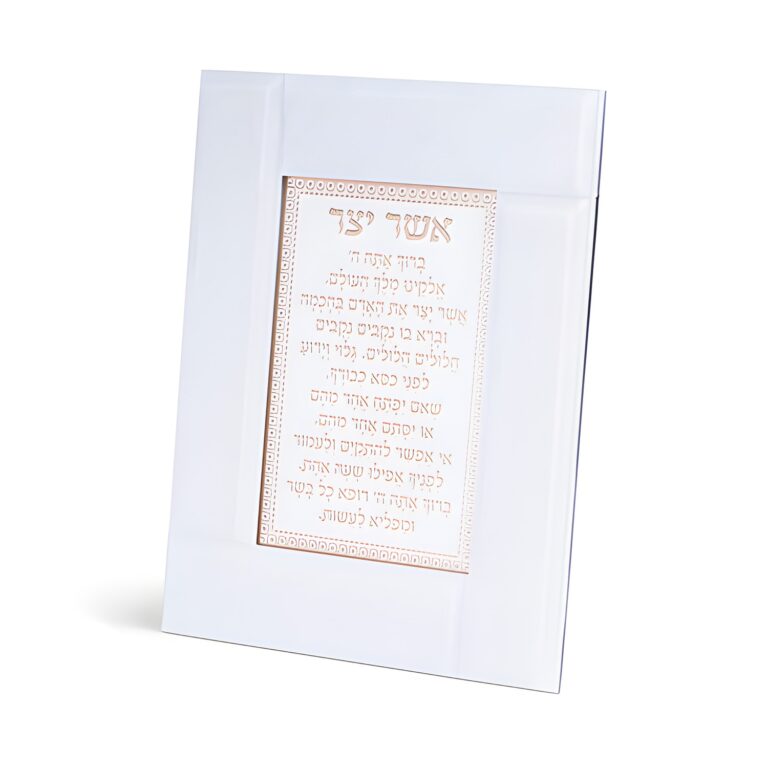 אשר יצר
בָּרוּךְ אַתָּה ה'
אֱלֹקֵינוּ מֶלֶךְ הָעוֹלָם,
אֲשֶׁר יָצַר אֶת הָאָדָם בְּחָכְמָה
וּבָרָא בוֹ נְקָבִים נְקָבִים
חֲלוּלִים חֲלוּלִים, גָּלוּי וְיָדוּעַ
לִפְנֵי כִסֵּא כְבוֹדֶךָ,
שֶׁאִם יִפָּתֵחַ אֶחָד מֵהֶם
אוֹ יִסָּתֵם אֶחָד מֵהֶם,
אִי אֶפְשַׁר לְהִתְקַיֵּם וְלַעֲמוֹד
לְפָנֶיךָ אֲפִילוּ שָׁעָה אֶחָת.
בָּרוּךְ אַתָּה ה' רוֹפֵא כָל בָּשָׂר
וּמַפְלִיא לַעֲשׂוֹת.